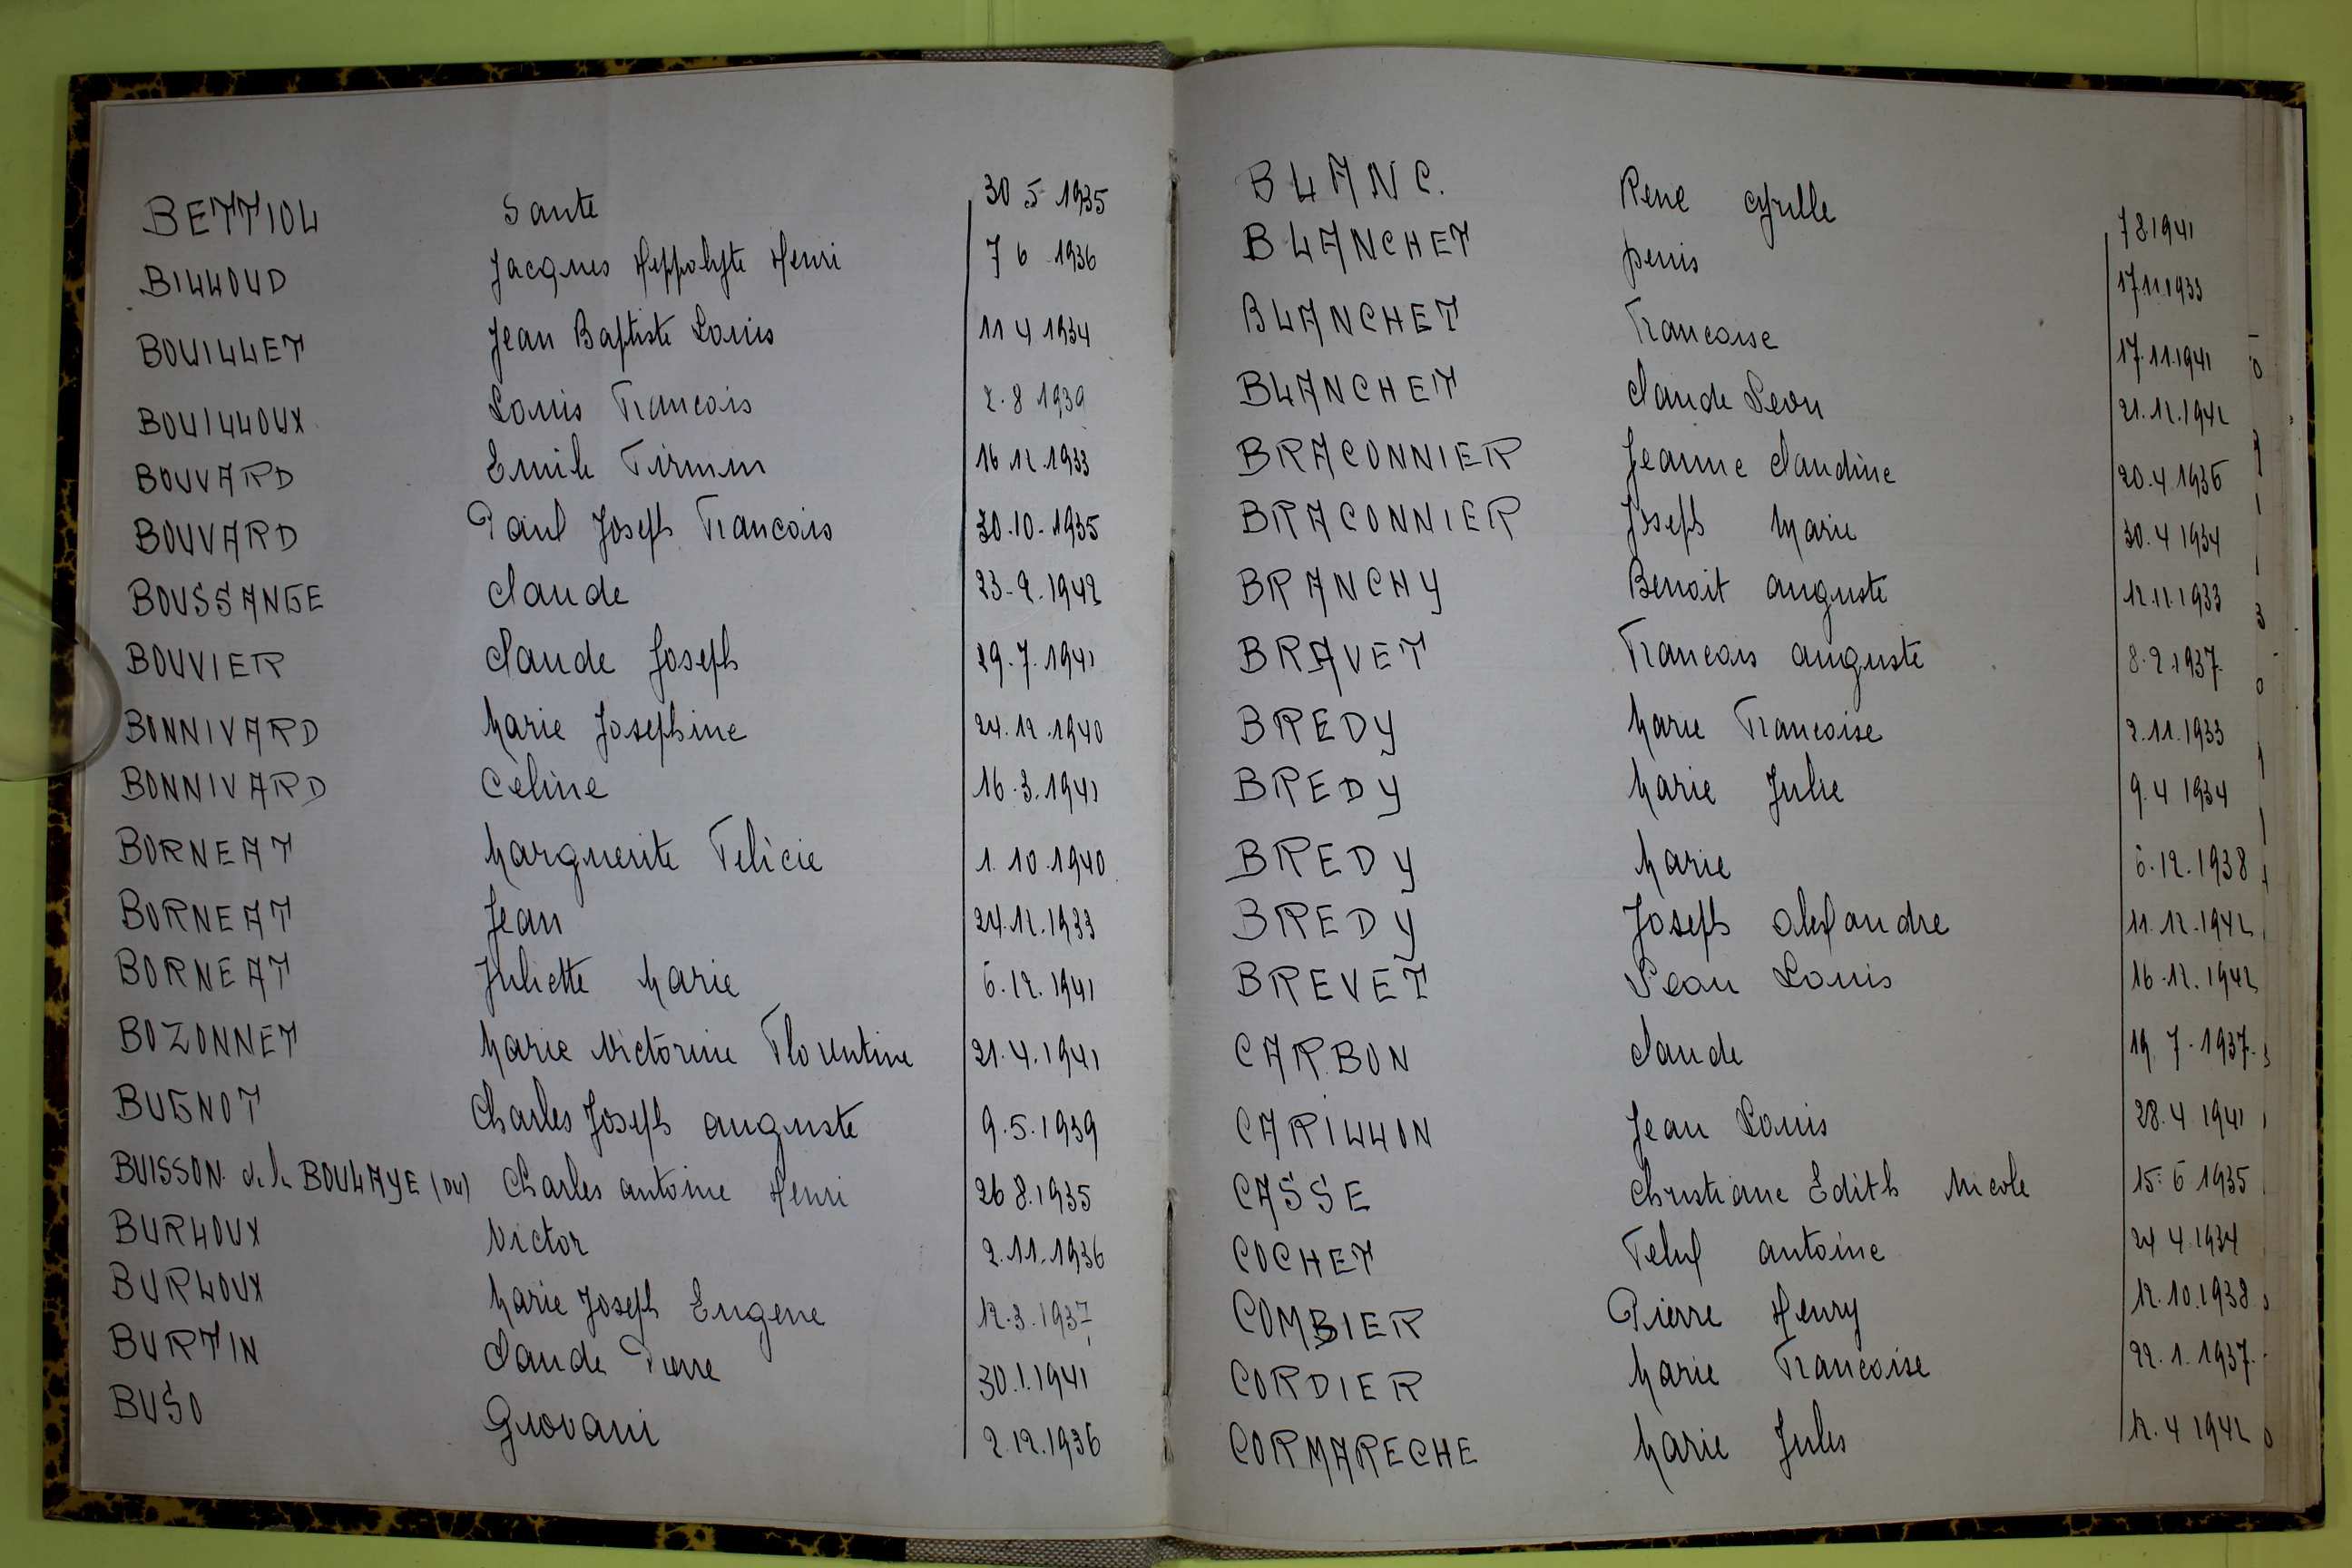 BETTIOL Sante 30 5 1935
BILLOUD Jacques Hippolyte Henri 7 6 1936
BOUILLET Jean Baptiste Louis 11 4 1934
BOUILLOUX Louis Francois 2.8 1939
BOUVARD Emile Firmin 16 12.1933
BOUVARD Paul Joseph Francois 30.10.1935
BOUSSANGE Claude 23.2.1942
BOUVIER Claude Joseph 29.7.1941
BONNIVARD Marie Josephine 24.12.1940
BONNIVARD Céline 16.3.1941
BORNEAT Marguerite Felicie 1.10.1940
BORNEAT Jean 24.12.1933
BORNEAT Juliette Marie 6.12.1941
BOZONNET Marie Victorine Florentine 21.4.1941
BUGNOT Charles Joseph Auguste 9.5.1939
BUISSON de la BOULAYE (DU) Charles Antoine Henri 26 8.1935
BURLOUX Victor 2.11.1936
BURLOUX Marie Joseph Eugene 12.3.1937
BURTIN Claude Pierre 30.1.1941
BUSO Giovani 2.12.1936
BLANC. René Cyrille 7 8 1941
BLANCHET Denis 17.11.1933
BLANCHET Francoise 17.11.1941
BLANCHET Claude Leon 21.12.1942
BRACONNIER Jeanne Claudine 20.4.1936
BRACONNIER Joseph Marie 30.4 1934
BRANCHY Benoit Auguste 12.11.1933
BRAVET Francois Auguste 8.2.1937
BREDY Marie Francoise 2.11.1933
BREDY Marie Julie 9.4 1934
BREDY Marie 6.12.1938
BREDY Joseph Alexandre 11.12.1942
BREVET Jean Louis 16.12.1942
CARBON Claude 19.7.1937
CARILLON Jean Louis 28.4 1941
CASSE Christiane Edith Nicole 15.6 1935
COCHET Antoine 24 4.1934
COMBIER Pierre Henry 12.10.1938
CORDIER Marie Francoise 22.1.1937
CORMARECHE Marie Jules 12.4 1942